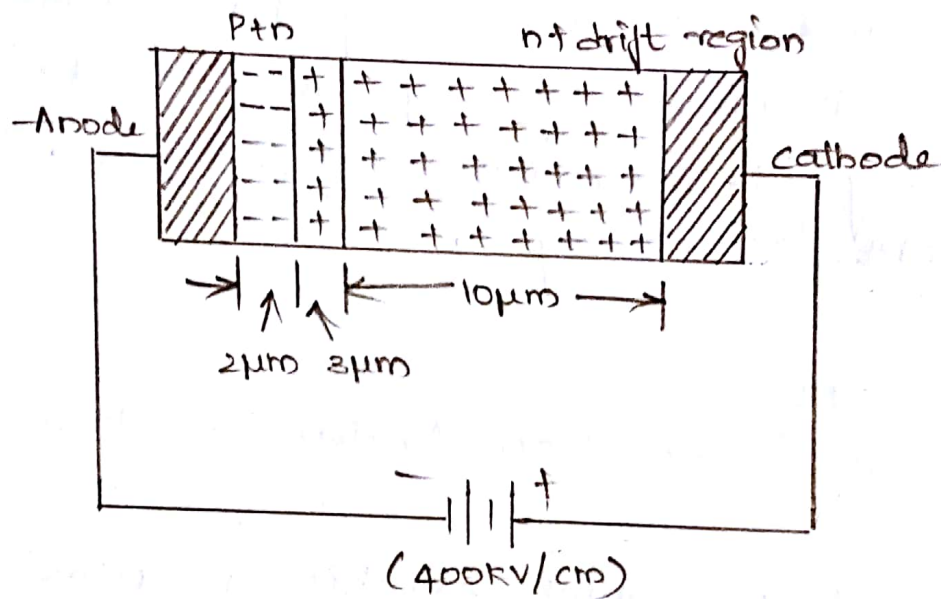 P+n
n+ drift region
Anode
Cathode
10μm
2μm 3μm
- +
(400KV/cm)